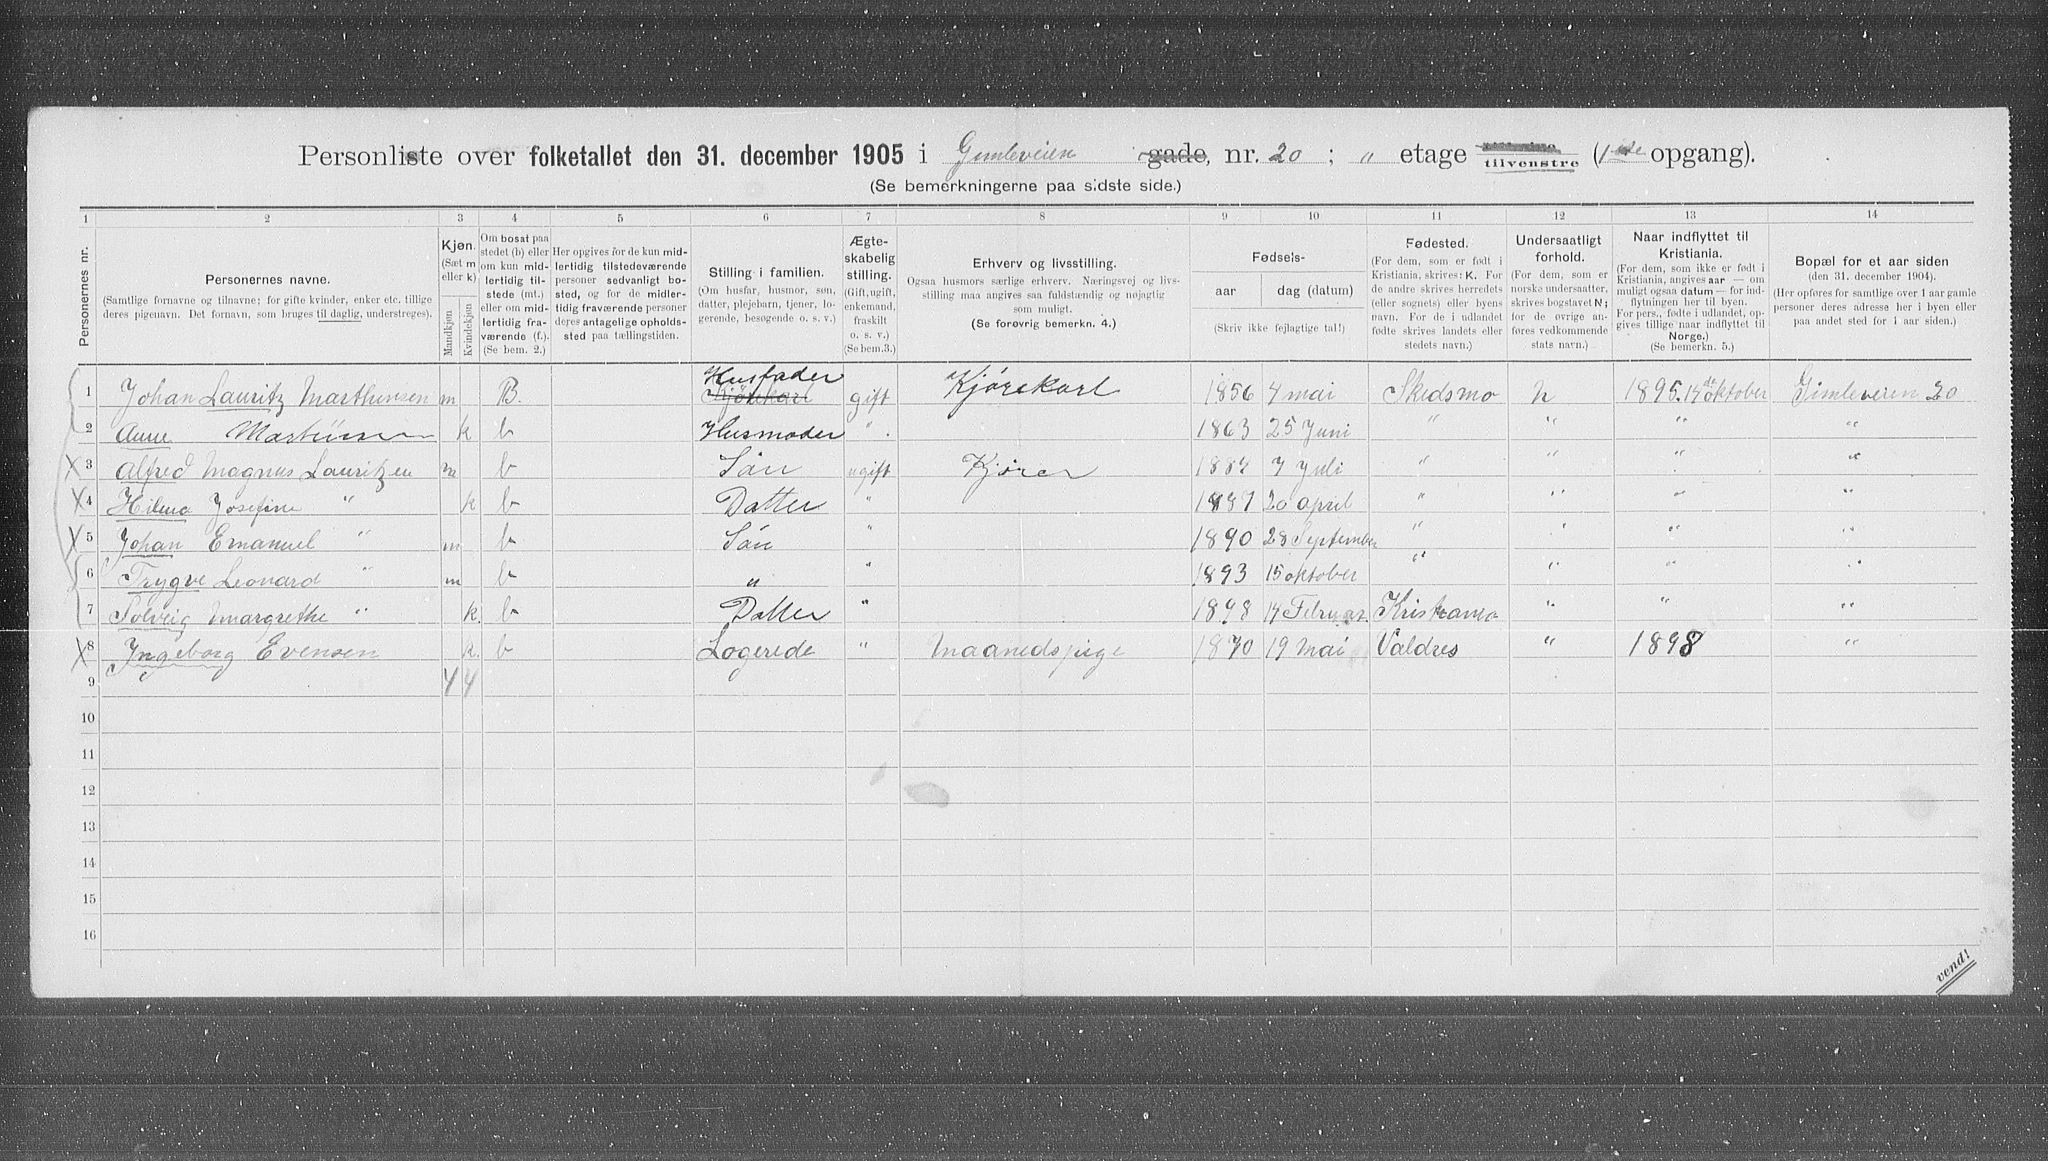 Personliste over folketallet den 31. december 1905 i Gimleveien gade, nr. 20 ; „ etage tilvenstre (1ste opgang).
(Se bemerkningerne paa sidste side.)
1 2 3 4 5 6 7 8 9 10 11 12 13 14
Personernes nr.
Personernes navne.
(Samtlige fornavne og tilnavne; for gifte kvinder, enker etc. tillige deres pigenavn. Det fornavn, som bruges til daglig, understreges).
Kjøn.
(Sæt m eller k)
Mandkjøn
Kvindekjøn
Om bosat paa stedet (b) eller om kun midlertidig tilstede (mt.) eller om midlertidig fraværende (f.).
(Se bem. 2.)
Her opgives for de kun midlertidig tilstedeværende personer sedvanligt bosted, og for de midlertidig fraværende personer deres antagelige opholdssted paa tællingstiden.
Stilling i familien.
(Om husfar, husmor, søn, datter, plejebarn, tjener, logerende, besøgende o. s. v.)
Ægteskabelig stilling.
(Gift, ugift, enkemand, fraskilt o. s. v.)
(Se bem.3.)
Erhverv og livsstilling.
Ogsaa husmors særlige erhverv. Næringsvej og livsstilling maa angives saa fuldstændig og nøjagtig som muligt.
(Se forøvrig bemerkn. 4.)
Fødsels-
aar
dag (datum)
(Skriv ikke fejlagtige tal!)
Fødested.
(For dem, som er født i Kristiania, skrives: K. For de andre skrives herredets (eller sognets) eller byens navn. For de i udlandet fødte skrives landets eller stedets navn.)
Undersaatligt forhold.
(For dem, som er norske undersaatter, skrives bogstavet N; for de øvrige anføres vedkommende stats navn.)
Naar indflyttet til Kristiania.
(For dem, som ikke er født i Kristiania, angives aar — om muligt ogsaa datum — for indflytningen her til byen. For pers., fødte i udlandet, opgives tillige naar indflyttet til Norge.)
(Se bemerkn. 5.)
Bopæl for et aar siden
(den 31. december 1904).
(Her opføres for samtlige over 1 aar gamle personer deres adresse her i byen eller paa andet sted for 1 aar siden.)
1 Johan Lauritz Marthinsen m B. Husfader Kjørekarl gift Kjørekarl 1856 4 mai Skedsmo N 1895. 14de oktober Gimleveien 20
2 Anne Martinsen k b Husmoder „ 1863 25 Juni „ „ „ „
3 Alfred Magnus Lauritzen m b Søn ugift Kjører 1884 7 Juli „ „ „ „
4 Hilma Josefine „ k b Datter „ 1887 20 april „ „ „ „
5 Johan Emanuel „ m b Søn „ 1890 28 September „ „ „ „
6 Trygve Leonard „ m b „ „ 1893 15 oktober „ „ „ „
7 Solveig Margrethe „ k. b Datter „ 1898 14 Februar. Kristiania „ „ „
8 Ingeborg Evensen k. b Logerede „ Maanedspige 1870 19 Mai Valdres „ 1898 „
9 4 4
10
11
12
13
14
15
16
vend!